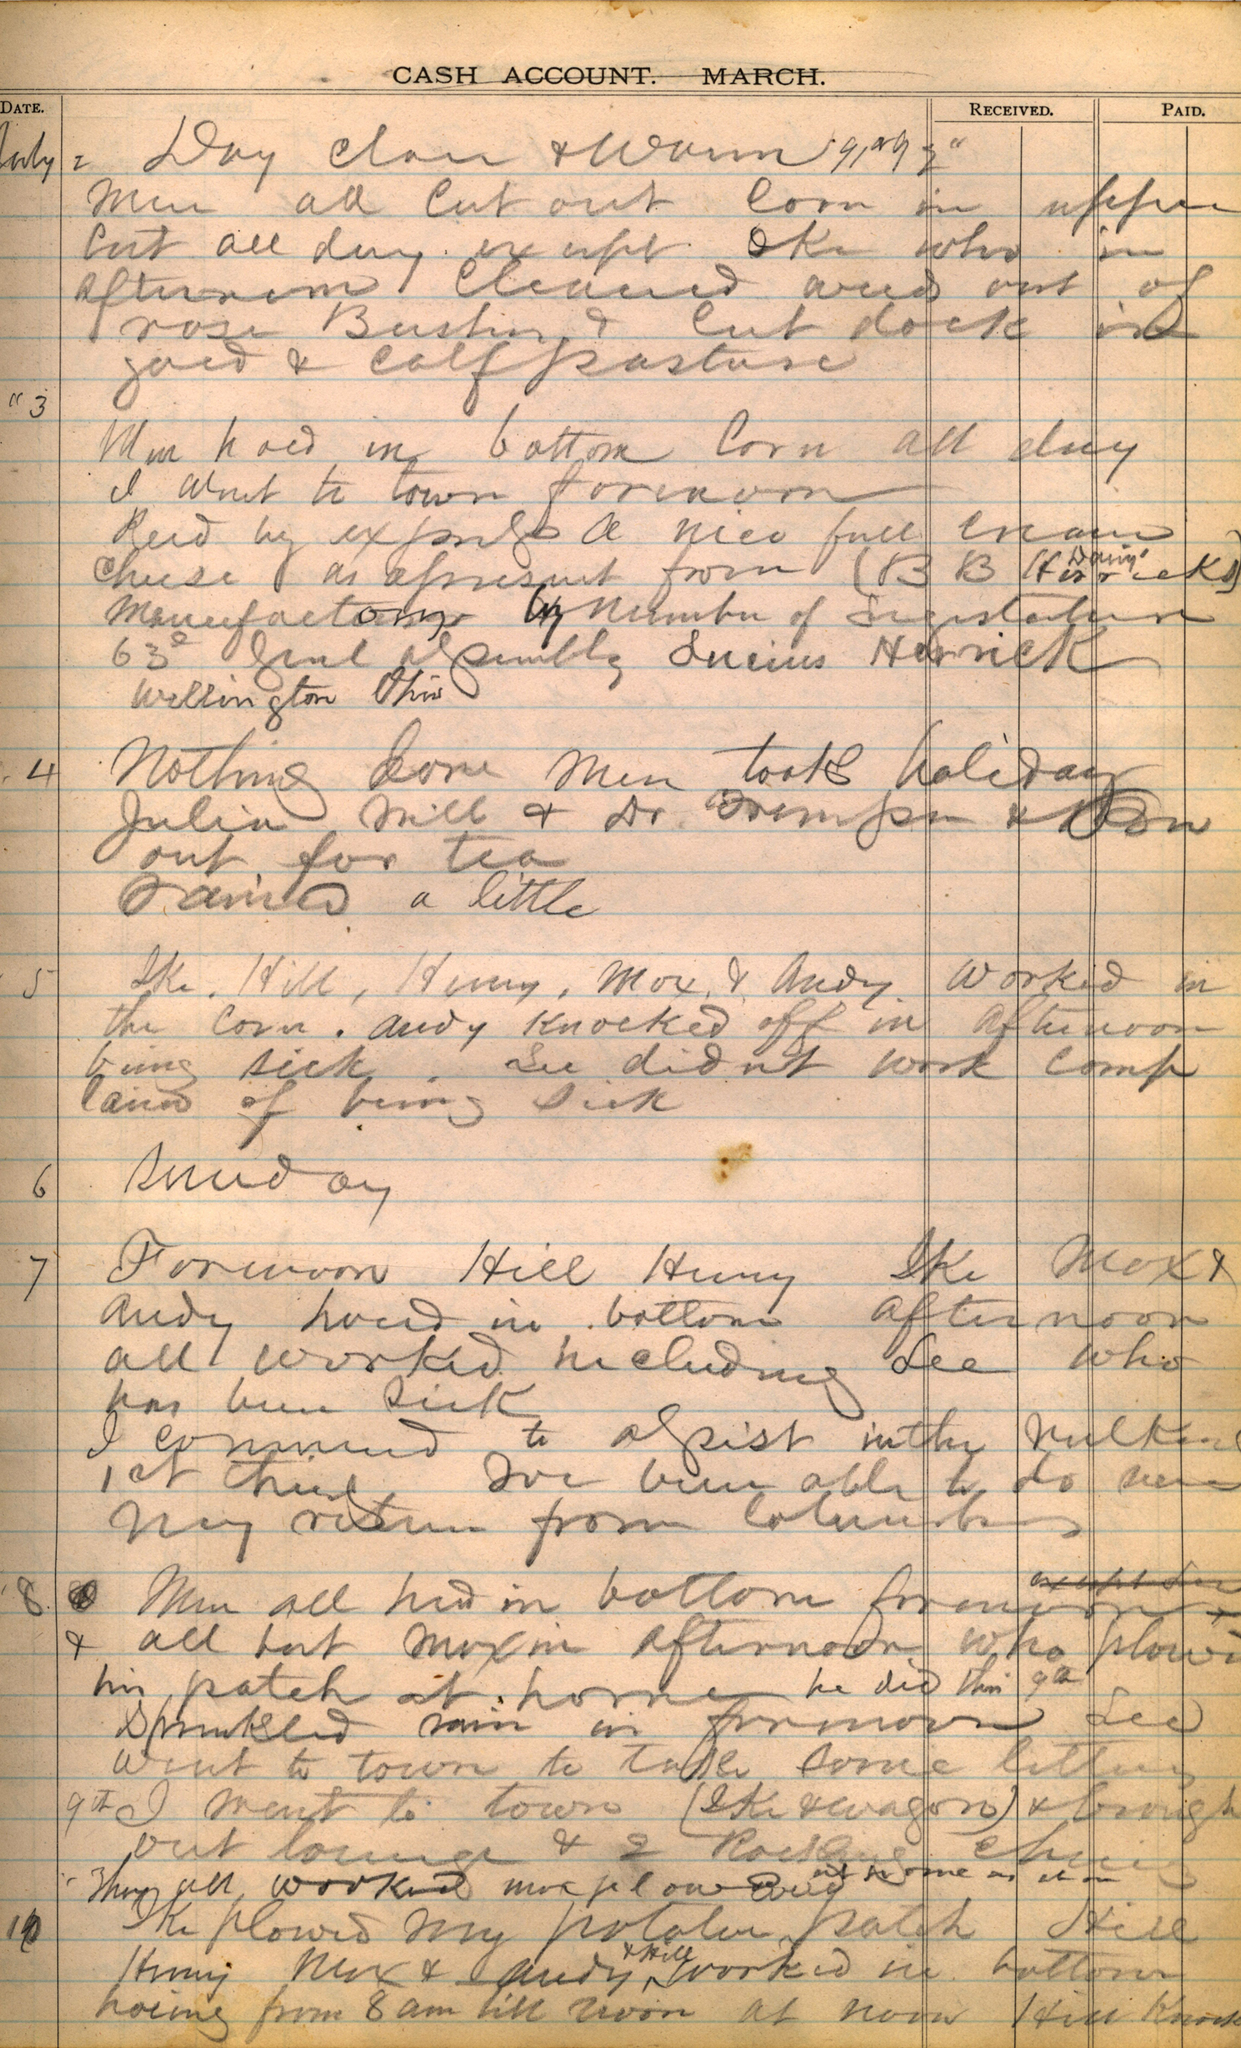 CASH ACCOUNT. MARCH.
DATE. RECEIVED. PAID.
July 2 Day clear & warm
Men all cut out corn in upper
cut all day except Ike who in
afternoon cleaned weeds out of
rose Bushes & cut dock in
yard & calf pasture
" 3
Men hoed in bottom corn all day
I went to town forenoon
Recd by express a nice full cream
cheese as a present from (B B Herricks Dairy)
Manufactory by Member of Legislature
63d Genl Assembly Lucius Herrick
Wellington Ohio
4 Nothing done Men took holiday
Julia Will & Dr. &
out for tea
rained a little
5 Ike, Hill, Henry, Mox, & Andy worked in
the corn. Andy knocked off in afternoon
being sick. Lee didnt work comp
lained of being sick
6 Sunday
7 Forenoon Hill Henry Ike Mox &
Andy hoed in bottom afternoon
all worked including Lee who
has been sick
I commenced to assist in the milking
1st time Ive been able to do since
my return from Columbus
8 Men all hoed in bottom forenoon except Lee
& all but Mox in afternoon who plowed
his patch at home he did this 9th
Sprinkled rain in forenoon Lee
went to town to take some letters
9th I went to town (Ike & wagon) & brough
out lounge & 2 Rocking Chairs
They all worked Mox plowed at home as
10 Ike plowed my potatoe patch Hill
Henry Mox & Andy & Hill worked in bottom
hoeing from 8 am till noon at noon Hill Knock